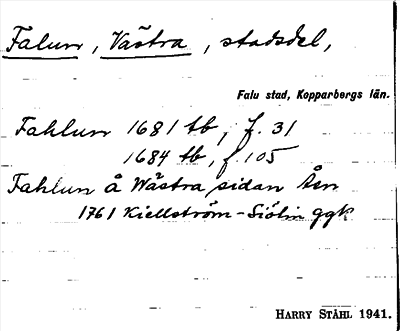 Falun, Västra, stadsdel,
Falu stad, Kopparbergs län.
Fahlun 1681 tb, f. 31
1684 tb, f. 105
Fahlun å Wästra sidan Åsn
1761 Kiellström-Siölin ggk
HARRY STÅHL 1941.